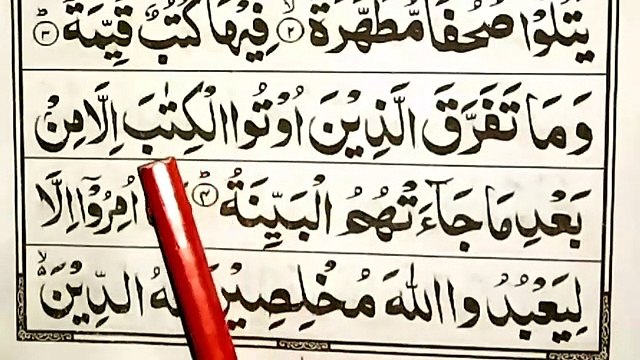 يَتْلُوْا صُحُفًا مُّطَهَّرَةً ۙ﴿۲﴾ فِيْهَا كُتُبٌ قَيِّمَةٌ ؕ﴿۳﴾
وَمَا تَفَرَّقَ الَّذِيْنَ اُوْتُوا الْكِتٰبَ اِلَّا مِنْۢ
بَعْدِ مَا جَآءَتْهُمُ الْبَيِّنَةُ ؕ﴿۴﴾ اُمِرُوْۤا اِلَّا
لِيَعْبُدُوا اللّٰهَ مُخْلِصِيْنَ الدِّيْنَ ۙ